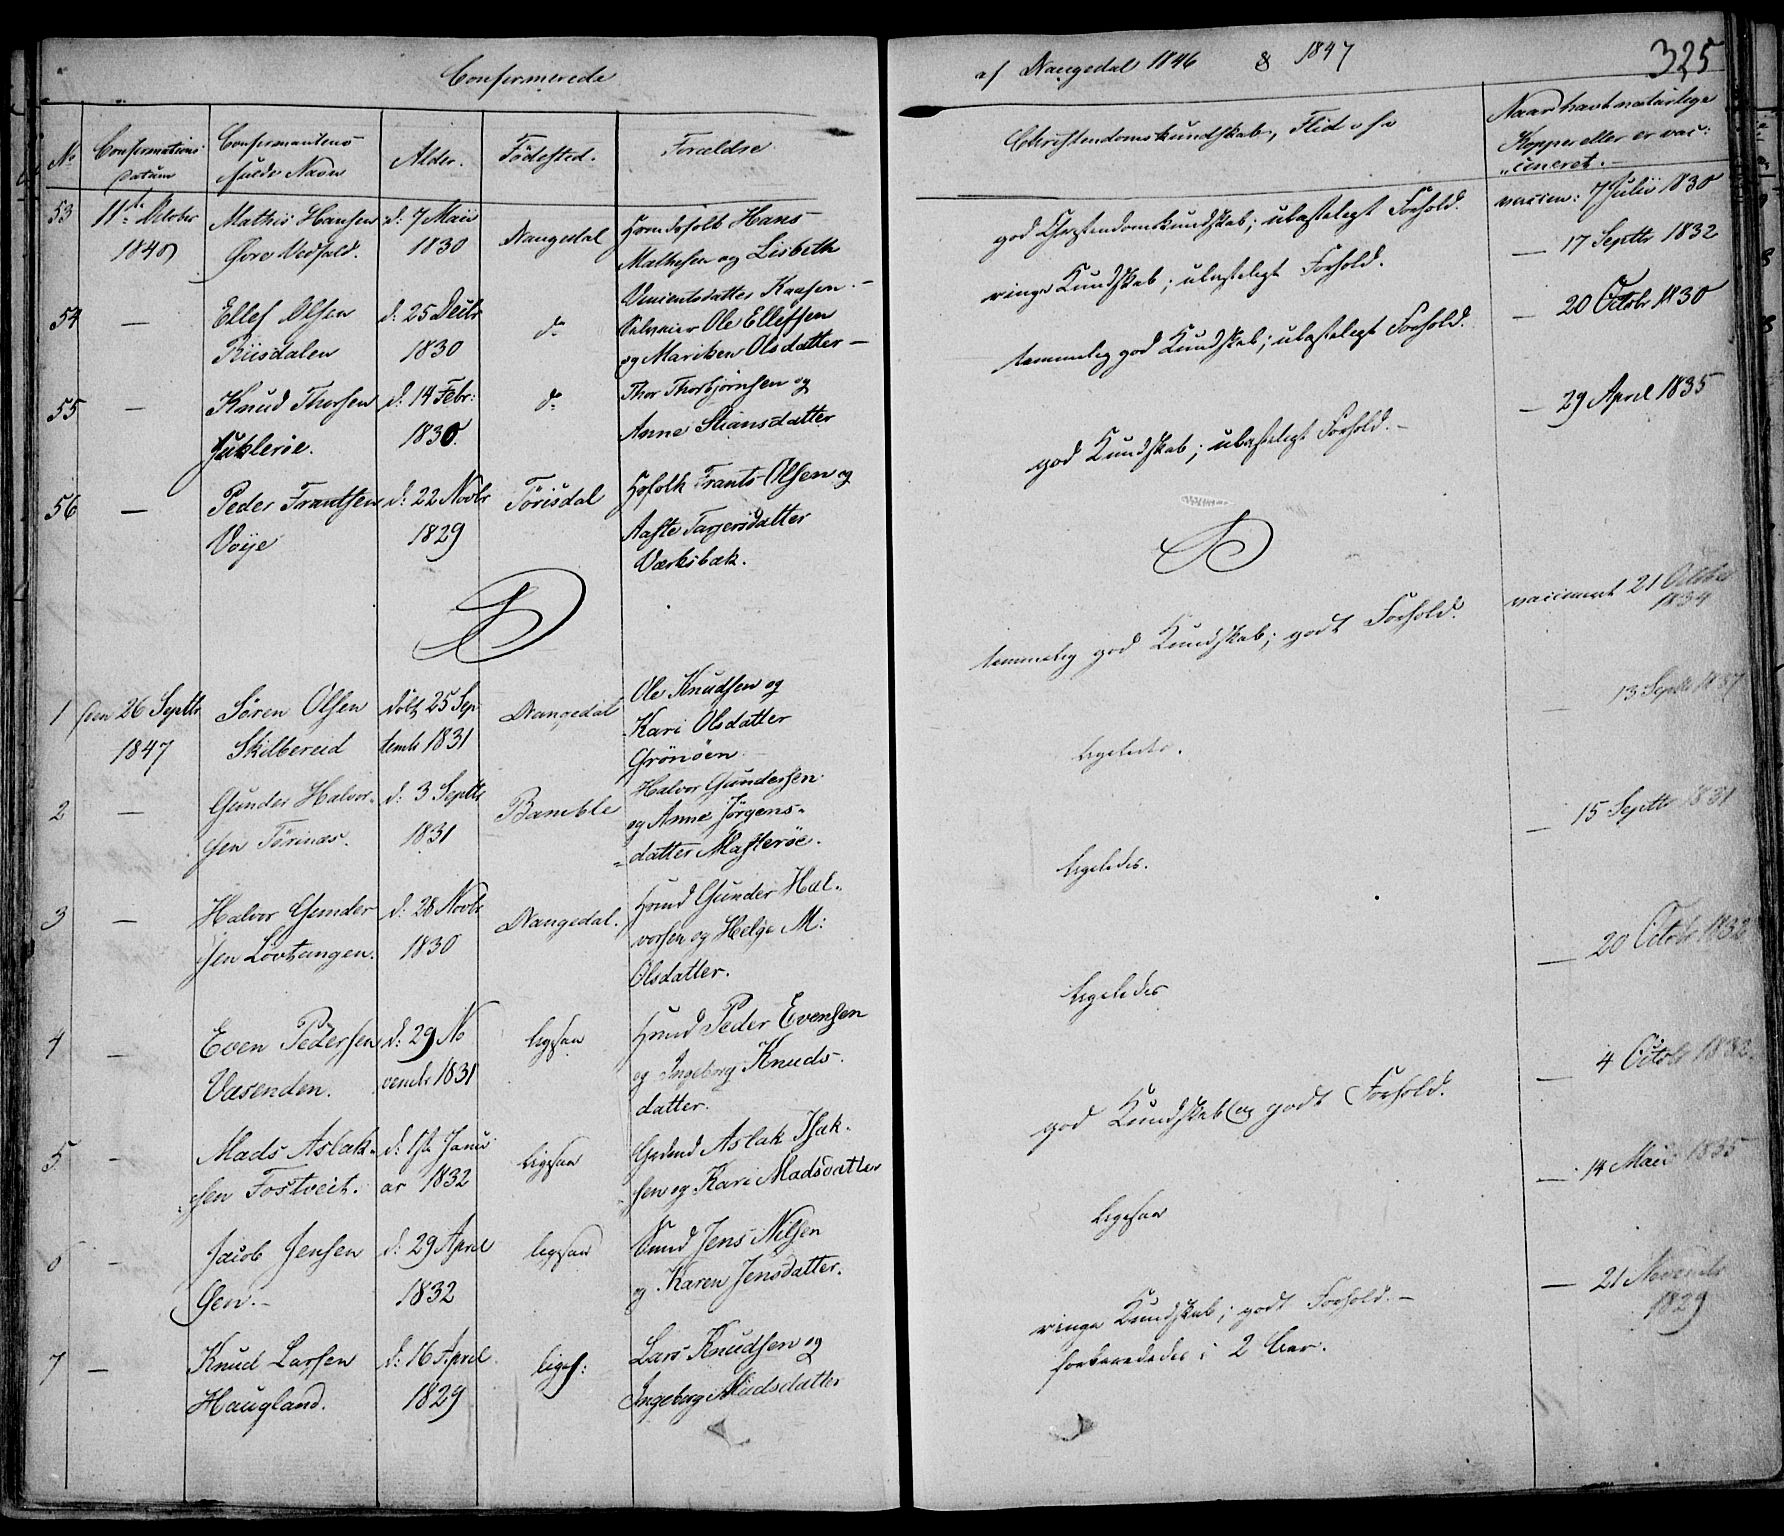 Confirmerede
af Drangedal 1846 & 1847
325
No
Confirmations-
datum
Confirmantens
fulde Navn
Alder.
Fødested.
Forældre
Christendomskundskab, Flid osv
Naar havt naturlige
Kopper eller er vac-
cineret.
53 11te October
1846
Mathis Hansen
Øvre Vefald.
d: 7 Maii
1830
Drangedal
Hans
Mathesen og Lisbeth
Vincentsdatter Kaasen.
god Christendomskundskab; ulasteligt Forhold.
vaccin: 7 Julii 1830
54 —
Ellef Olsen
Riisdalen
d: 25 Decbr
1830
do
Selveier Ole Ellefsen
og Mariken Olsdatter —
ringe Kundskab; ulasteligt Forhold.
— 17 Septbr 1832
55 —
Knud Thorsen
Juklerøe.
d: 14 Febr:
1830.
do
Thor Thorbjørnsen og
Anne Stiansdatter
temmelig god Kundskab; ulasteligt Forhold.
— 20 Octobr 1830
56 —
Peder Frantsen
Voje
d: 22 Novbr
1829
Tørisdal
Frants Olsen og
Aaste Targersdatter
Værksbæk.
god Kundskab; ulasteligt Forhold. —
— 29 April 1835
1 den 26 Septbr
1847
Søren Olsen
Skilbereid
døbt 25 Sep-
tembr 1831
Drangedal
Ole Knudsen og
Kari Olsdatter
Grønøen
temmelig god Kundskab; godt Forhold.
vaccineret 21 October
1834
2 —
Gunder Halvor-
sen Tørinæs.
d: 3 Septbr
1831
Bamble
Halvor Gundersen
og Anne Jørgens-
datter Masterøe.
ligeledes.
— 13 Septbr 1837
3 —
Halvor Gunder
sen Løvtangen.
d: 28 Novbr
1830
Drangedal.
Hmd Gunder Hal-
vorsen og Helge M:
Olsdatter.
ligeledes.
— 15 Septbr 1831
4 —
Even Pedersen
Væsenden.
d: 29 No
vembr 1831
ligesaa
Hmd Peder Evensen
og Ingeborg Knuds-
datter.
ligeledes
— 20 Octobr 1832
5 —
Mads Aslak-
sen Fostveit.
d: 1ste Janu-
ar 1832
ligesaa
Gdmd Aslak Isak-
sen og Kari Madsdatter
god Kundskab og godt Forhold.
— 4 Octobr 1832
6 —
Jacob Jensen
Øen. —
d: 29 April
1832
ligesaa
Jens Nilsen
og Karen Jensdatter.
ligesaa
— 14 Maii 1835
7 —
Knud Larsen
Haugland.
d: 16 April
1829
liges:
Lars Knudsen og
Ingeborg Madsdatter
ringe Kundskab; godt Forhold. —
forberededes i 2 Aar.
— 21 Novembr
1829